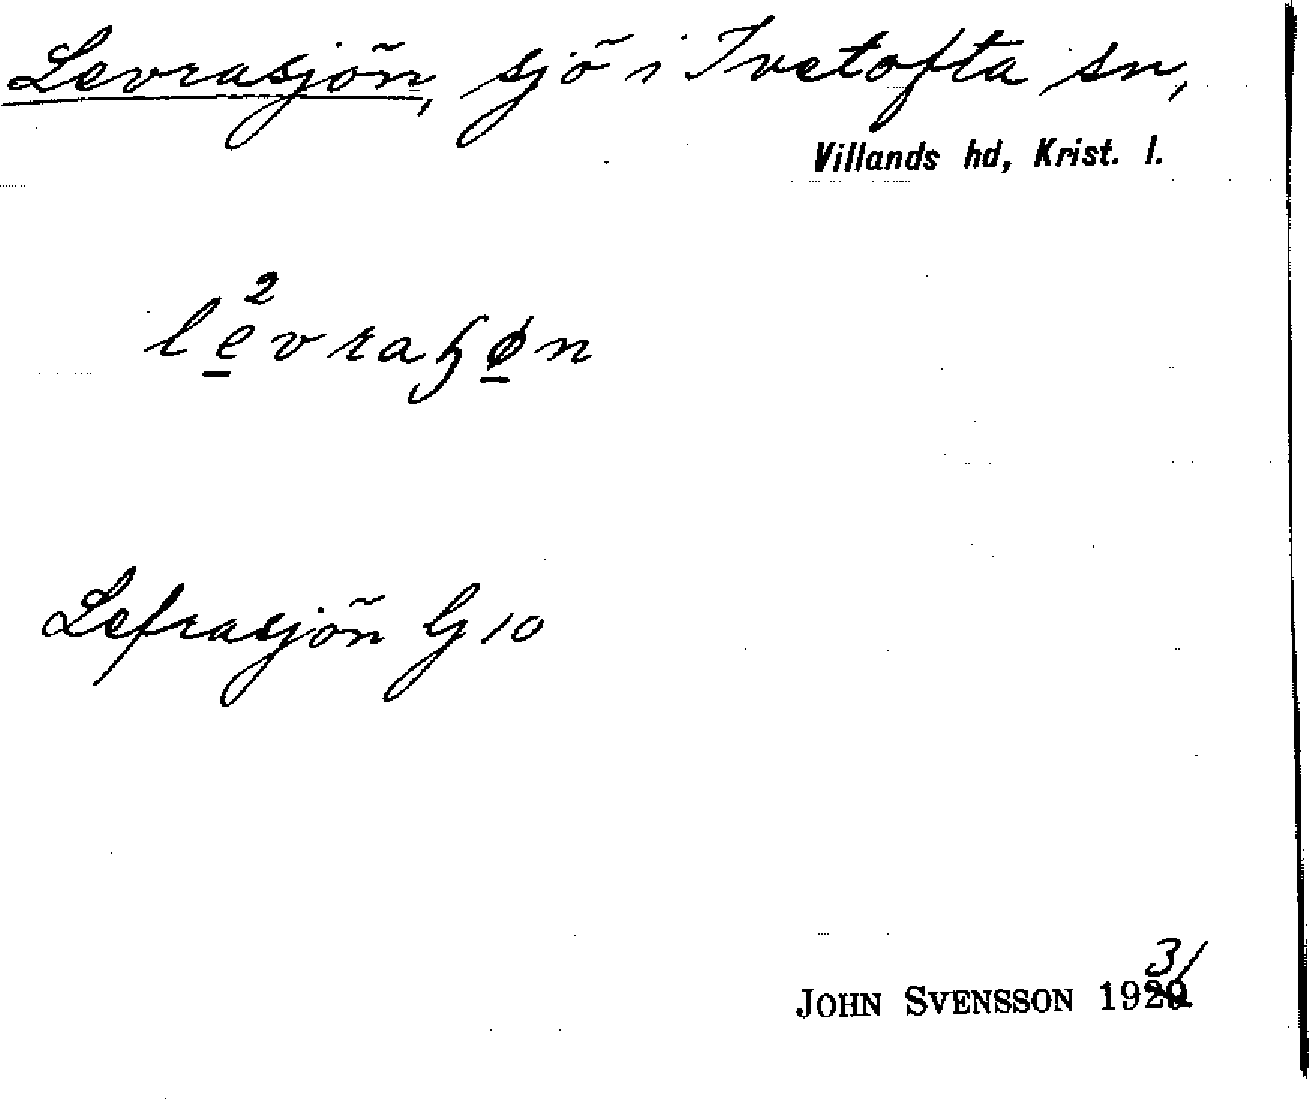 Levrasjön, sjö i Ivetofta sn,
Villands hd, Krist. l.
le̠²vraɧø̠n
Lefrasjön G 10
JOHN SVENSSON 1931